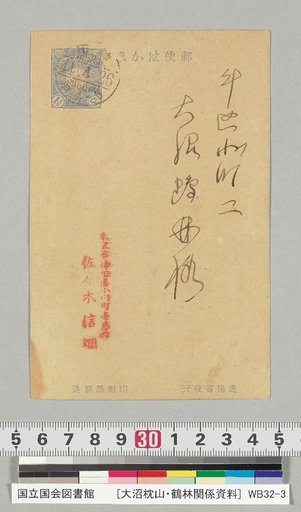 郵便はかき
牛込北町二
大沼
様
東京市神田区小川町壱番地
佐々木信綱
逓信省発行
印刷局製造
5 6 7 8 9 30 1 2 3 4 5
国立国会図書館 [大沼枕山・鶴林関係資料] WB32-3